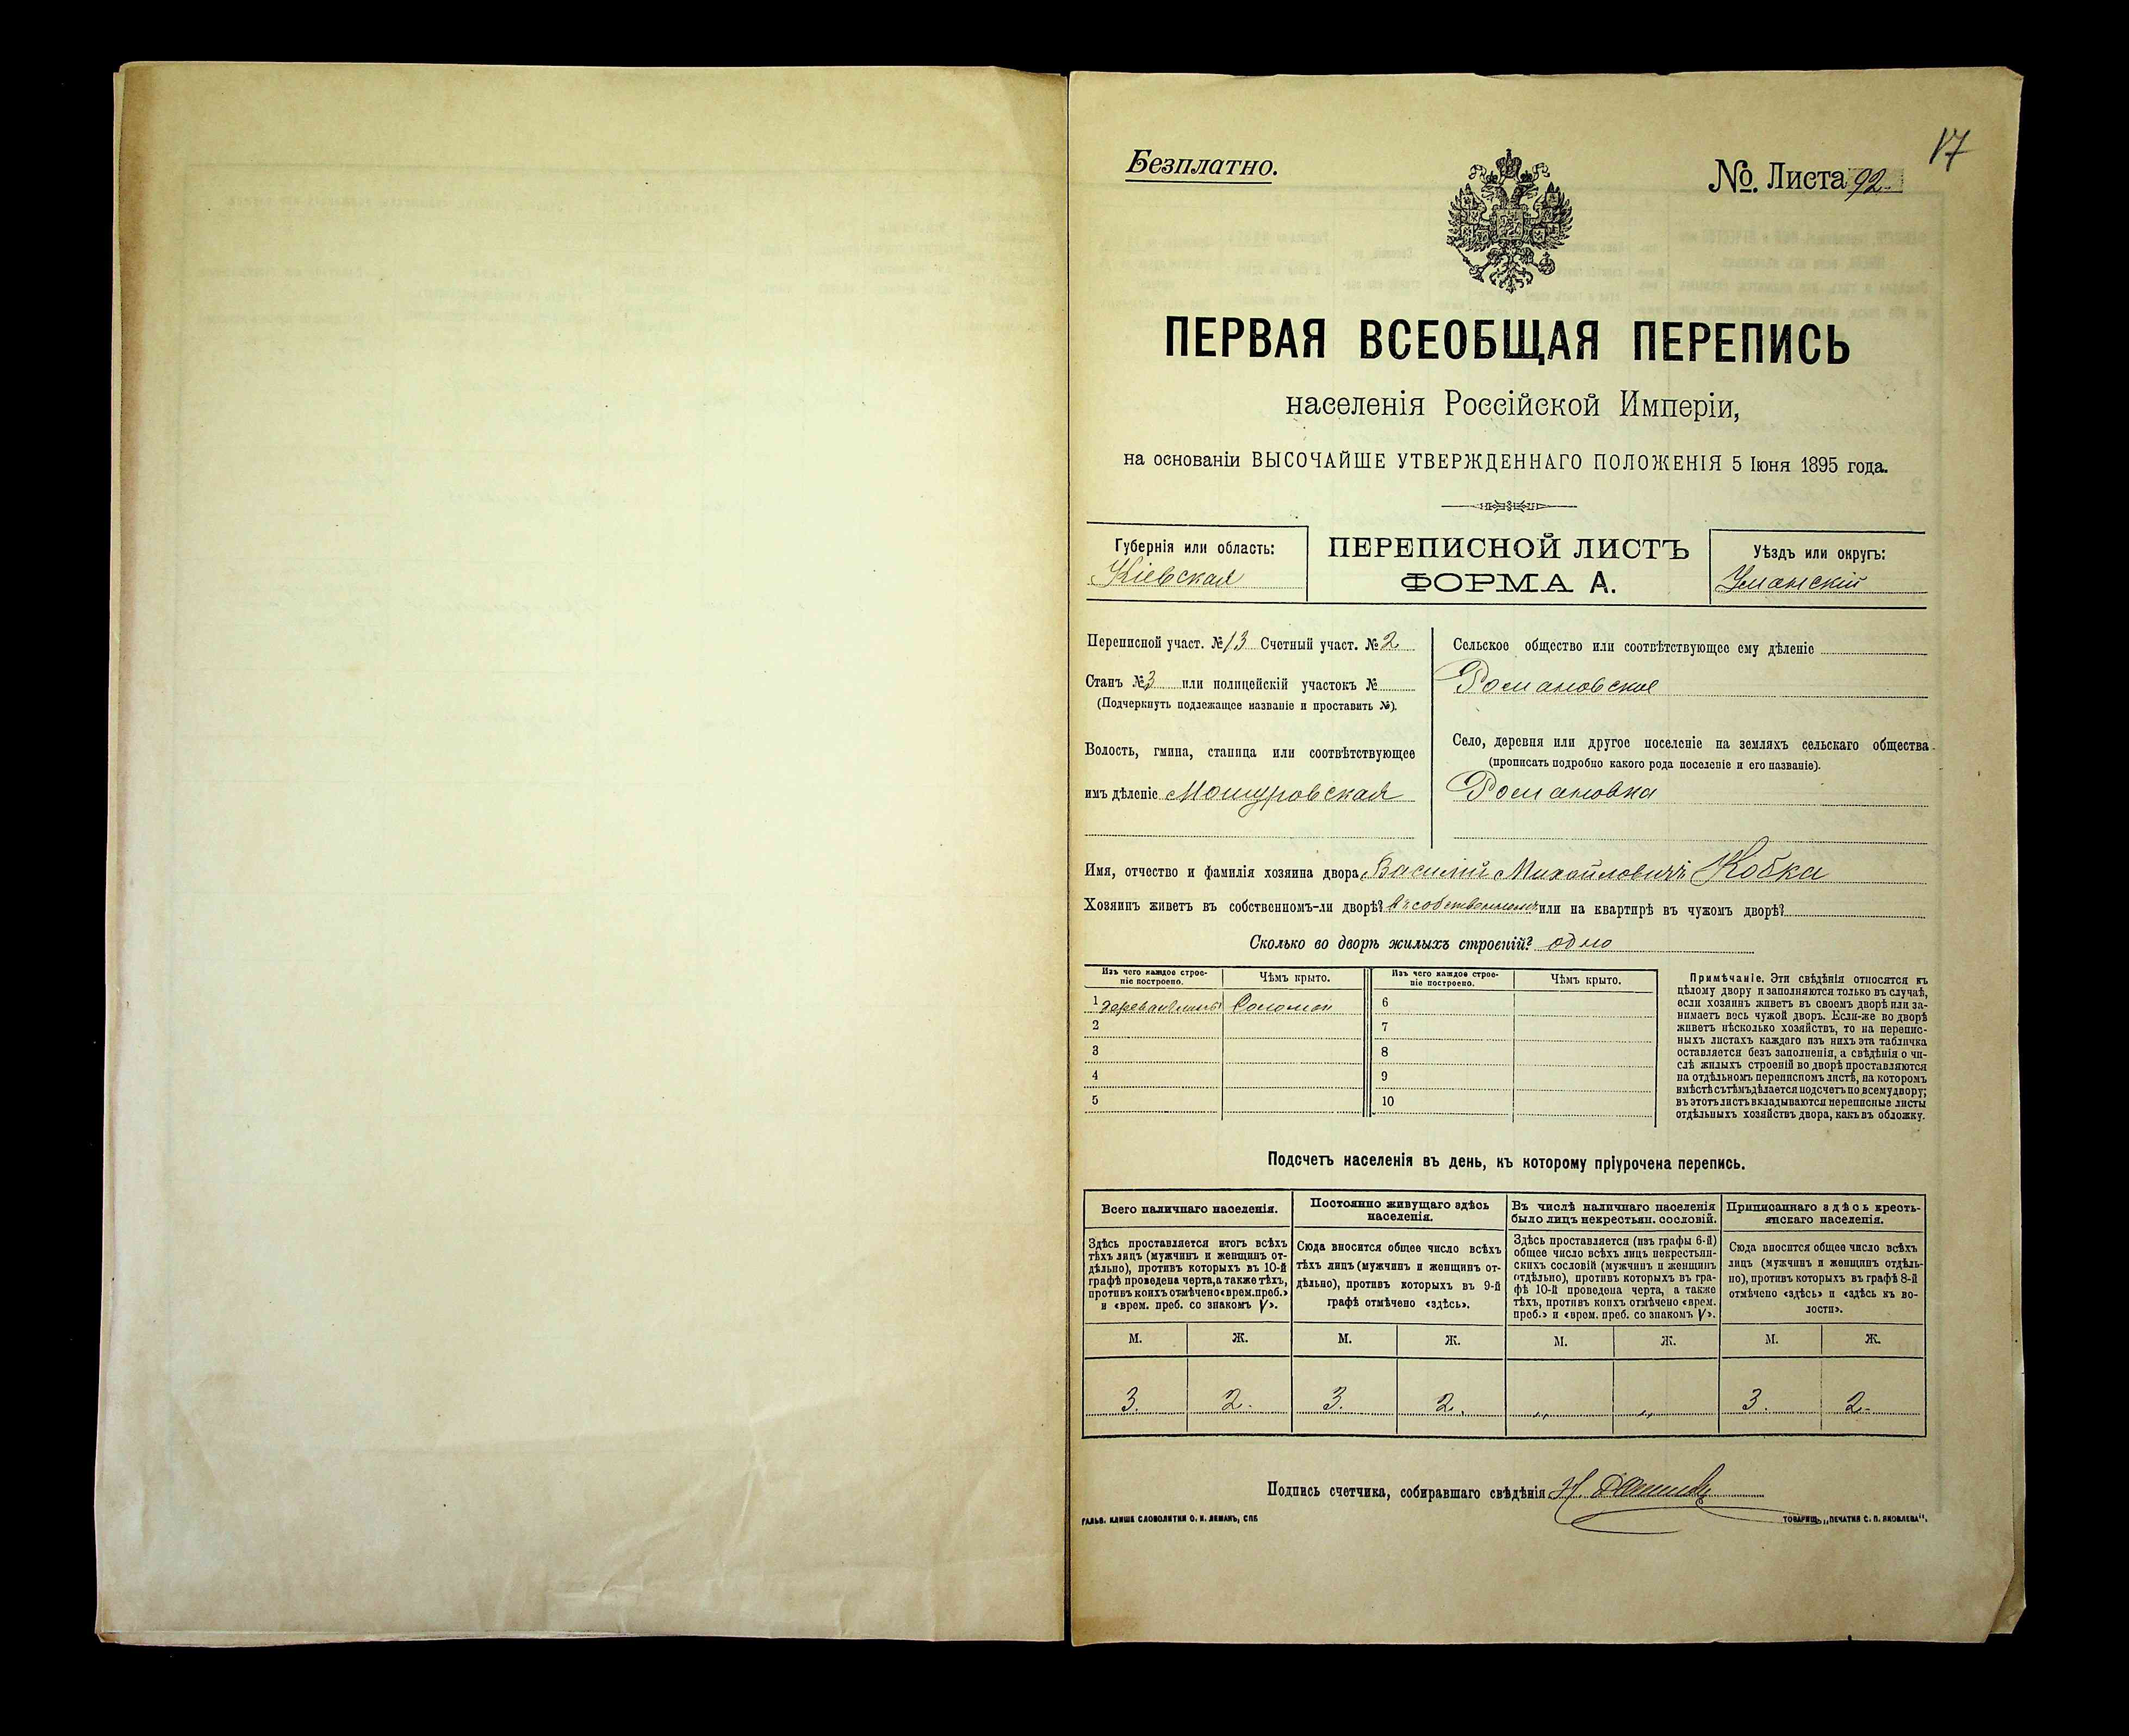 17
Безплатно.
№. Листа 92
ПЕРВАЯ ВСЕОБЩАЯ ПЕРЕПИСЬ
населенія Россійской Имперіи,
на основаніи ВЫСОЧАЙШЕ УТВЕРЖДЕННАГО ПОЛОЖЕНІЯ 5 Іюня 1895 года.
Губернія или область:
Кіевская
ПЕРЕПИСНОЙ ЛИСТЪ
ФОРМА А.
Уѣздъ или округъ:
Уманскій
Переписной участ. № 13 Счетный участ. № 2
Станъ № 3 или полицейскій участокъ №
(Подчеркнуть подлежащее названіе и проставить №).
Волость, гмина, станица или соотвѣтствующее
имъ дѣленіе Мошуровская
Сельское общество или соотвѣтствующее ему дѣленіе
Романовское
Село, деревня или другое поселеніе на земляхъ сельскаго общества
(прописать подробно какого рода поселеніе и его названіе).
Романовка
Имя, отчество и фамилія хозяина двора Василій Михайловичъ Кобка
Хозяинъ живетъ въ собственномъ-ли дворѣ? въ собственномъ или на квартирѣ въ чужомъ дворѣ?
Сколько во дворѣ жилыхъ строеній? одно
Изъ чего каждое строе-
ніе построено.
Чѣмъ крыто.
Изъ чего каждое строе-
ніе построено.
Чѣмъ крыто.
1 Соломой
2
3
4
5
6
7
8
9
10
Примѣчаніе. Эти свѣдѣнія относятся къ
цѣлому двору и заполняются только въ случаѣ,
если хозяинъ живетъ въ своемъ дворѣ или за-
нимаетъ весь чужой дворъ. Если-же во дворѣ
живетъ нѣсколько хозяйствъ, то на перепис-
ныхъ листахъ каждаго изъ нихъ эта табличка
оставляется безъ заполненія, а свѣдѣнія о чи-
слѣ жилыхъ строеній во дворѣ проставляются
на отдѣльномъ переписномъ листѣ, на которомъ
вмѣстѣ съ тѣмъ дѣлается подсчетъ по всему двору;
въ этотъ листъ вкладываются переписные листы
отдѣльныхъ хозяйствъ двора, какъ въ обложку.
Подсчетъ населенія въ день, къ которому пріурочена перепись.
Всего наличнаго населенія.
Здѣсь проставляется итогъ всѣхъ
тѣхъ лицъ (мужчинъ и женщинъ от-
дѣльно), противъ которыхъ въ 10-й
графѣ проведена черта, а также тѣхъ,
противъ коихъ отмѣчено «врем. преб.»
и «врем. преб. со знакомъ V».
Постоянно живущаго здѣсь
населенія.
Сюда вносится общее число всѣхъ
тѣхъ лицъ (мужчинъ и женщинъ от-
дѣльно), противъ которыхъ въ 9-й
графѣ отмѣчено «здѣсь».
Въ числѣ наличнаго населенія
было лицъ некрестьян. сословій.
Здѣсь проставляется (изъ графы 6-й)
общее число всѣхъ лицъ некрестьян-
скихъ сословій (мужчинъ и женщинъ
отдѣльно), противъ которыхъ въ гра-
фѣ 10-й проведена черта, а также
тѣхъ, противъ коихъ отмѣчено «врем.
преб.» и «врем. преб. со знакомъ V».
Приписаннаго здѣсь кресть-
янскаго населенія.
Сюда вносится общее число всѣхъ
лицъ (мужчинъ и женщинъ отдѣль-
но), противъ которыхъ въ графѣ 8-й
отмѣчено «здѣсь» и «здѣсь къ во-
лости».
М. Ж. М. Ж. М. Ж. М. Ж.
3. 2. 3. 2. „ „ 3. 2.
Подпись счетчика, собиравшаго свѣдѣнія
ГАЛЬВ. КЛИШЕ СЛОВОЛИТНИ О. И. ЛЕМАНЪ, СПБ
ТОВАРИЩ. „ПЕЧАТНЯ С. П. ЯКОВЛЕВА".